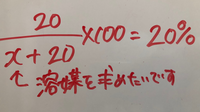 20
x+20 ×100=20%
↑ 溶媒を求めたいです